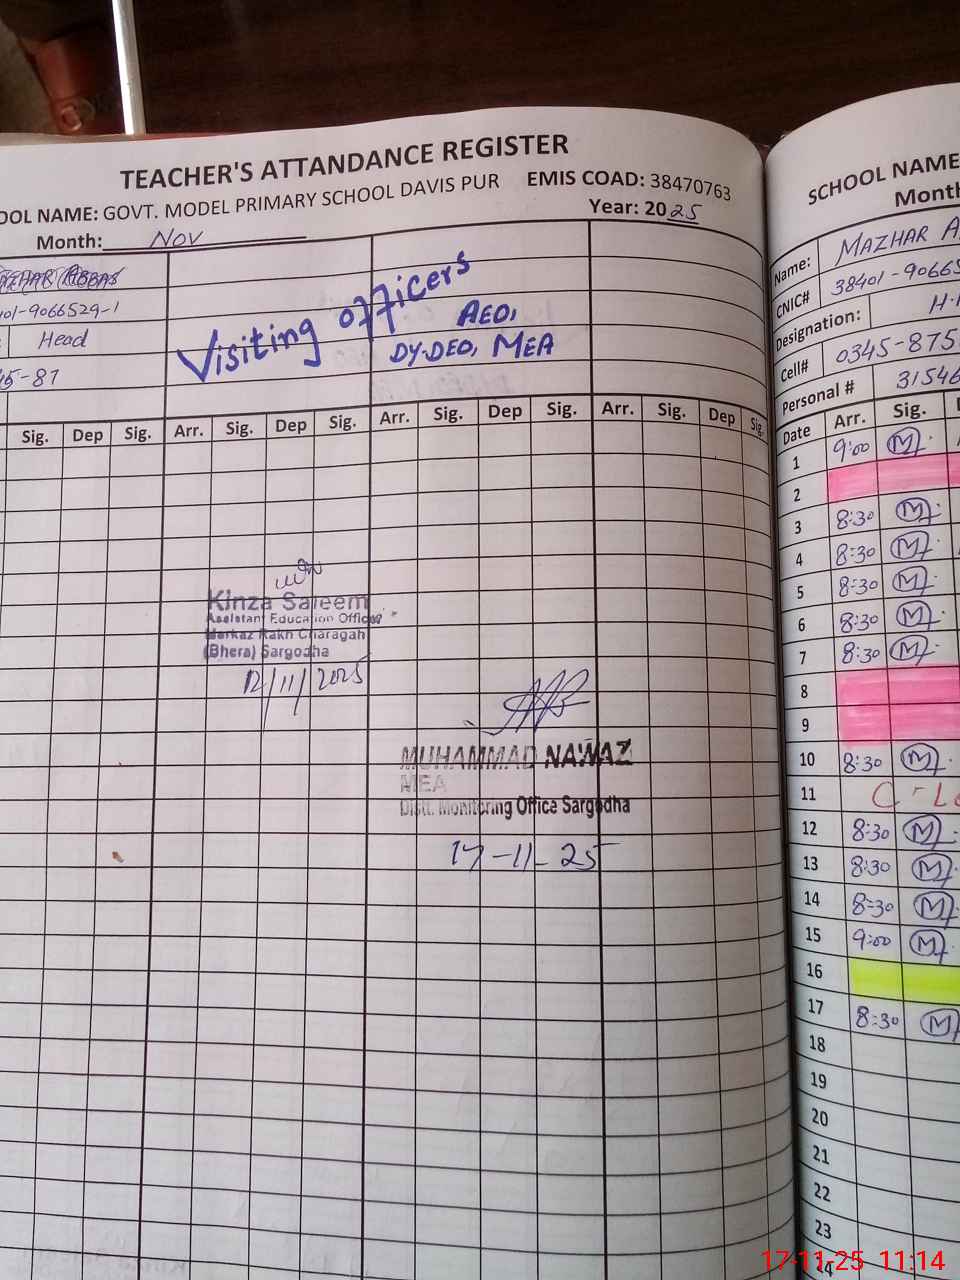 TEACHER'S ATTANDANCE REGISTER
OOL NAME: GOVT. MODEL PRIMARY SCHOOL DAVIS PUR EMIS COAD: 38470763
Month: Nov Year: 2025
01-9066529-1
Head
45-87
Visiting officers
AEO,
DY.DEO, MEA
Sig. Dep Sig. Arr. Sig. Dep Sig. Arr. Sig. Dep Sig. Arr. Sig. Dep Sig.
Kinza Saleem
Assistant Education Officer
Markaz Rakh Charagah
(Bhera) Sargodha
12/11/2025
MUHAMMAD NAWAZ
MEA
Distt. Monitoring Office Sargodha
17-11-25
SCHOOL NAME
Month
Name: MAZHAR A
CNIC# 38401-90665
Designation: H.
Cell# 0345-875
Personal # 3154
Date Arr. Sig.
1 9:00 M
2
3 8:30 M
4 8:30 M
5 8:30 M
6 8:30 M
7 8:30 M
8
9
10 8:30 M
11 C-Le
12 8:30 M
13 8:30 M
14 8:30 M
15 9:00 M
16
17 8:30 M
18
19
20
21
22
23
24
17-11-25 11:14